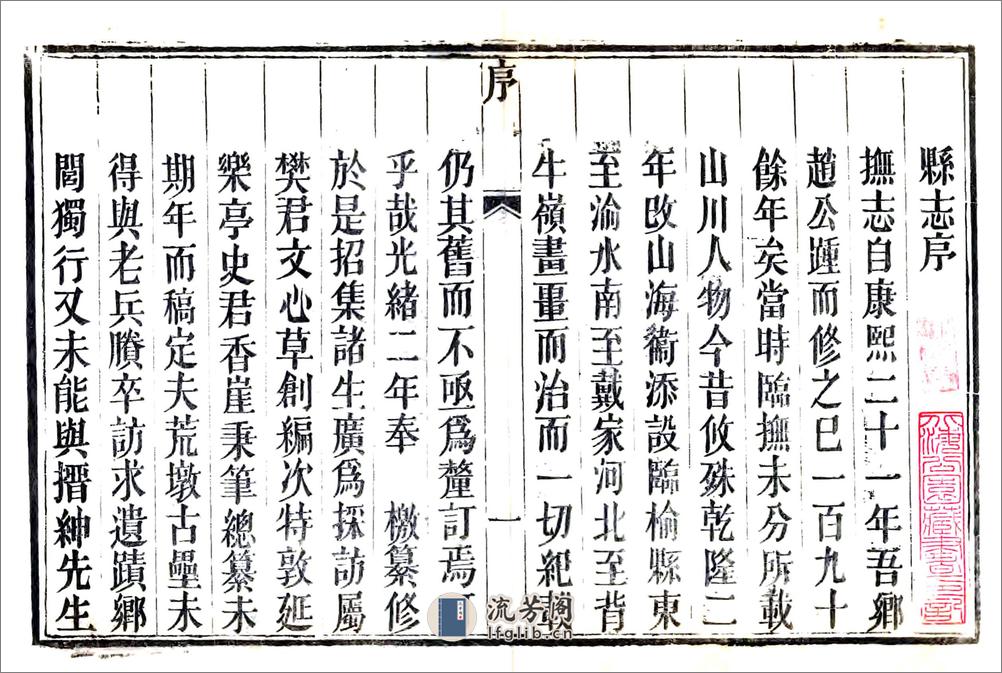 縣志序
撫志自康熙二十一年吾鄉
趙公踵而修之已一百九十
餘年矣當時臨撫未分所載
山川人物今昔攸殊乾隆二
年改山海衞添設臨榆縣東
至渝水南至戴家河北至背
牛嶺畫畺而治而一切紀載
序
一
仍其舊而不亟爲釐訂焉
乎哉光緒二年奉 檄纂修
於是招集諸生廣爲採訪屬
樊君文心草創編次特敦延
樂亭史君香崖秉筆總纂未
期年而稿定夫荒墩古壘未
得與老兵賸卒訪求遺蹟鄉
閭獨行又未能與搢紳先生
流芳閣
lfglib.cn